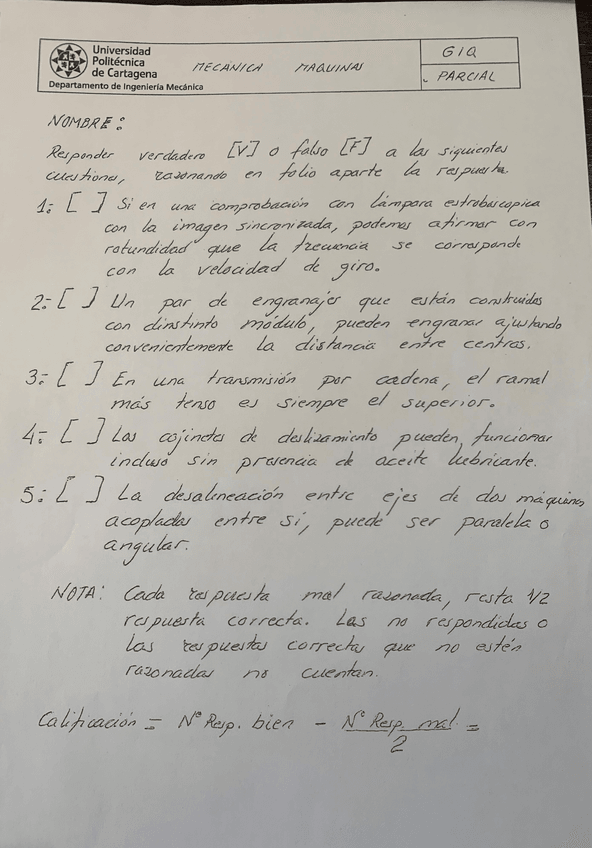 Universidad
Politécnica
de Cartagena
Departamento de Ingeniería Mecánica
MECÁNICA MAQUINAS
GIQ
PARCIAL
NOMBRE:
Responder verdadero [V] o falso [F] a las siguientes
cuestiones, razonando en folio aparte la respuesta.
1:- [ ] Si en una comprobación con lámpara estroboscopica
con la imagen sincronizada, podemos afirmar con
rotundidad que la frecuencia se corresponde
con la velocidad de giro.
2:- [ ] Un par de engranajes que están construidos
con dinstinto módulo, pueden engranar ajustando
convenientemente la distancia entre centros.
3:- [ ] En una transmisión por cadena, el ramal
más tenso es siempre el superior.
4:- [ ] Los cojinetes de deslizamiento pueden, funcionar
incluso sin presencia de aceite lubricante.
5:- [ ] La desalineación entre ejes de dos máquinas
acopladas entre sí, puede ser paralela o
angular.
NOTA: Cada respuesta mal razonada, resta 1/2
respuesta correcta. Las no respondidas o
las respuestas correctas que no estén
razonadas no cuentan.
Calificación = Nº Resp. bien - Nº Resp. mal =
2